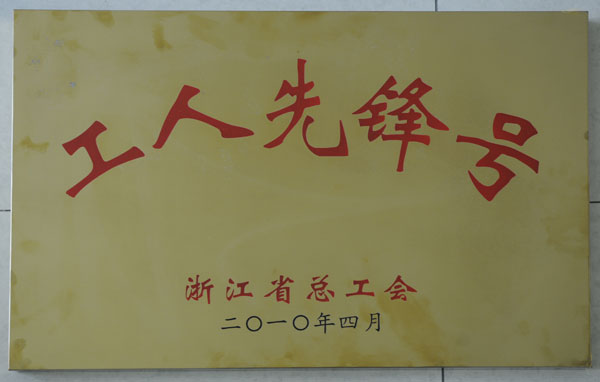 工人先锋号
浙江省总工会
二〇一〇年四月